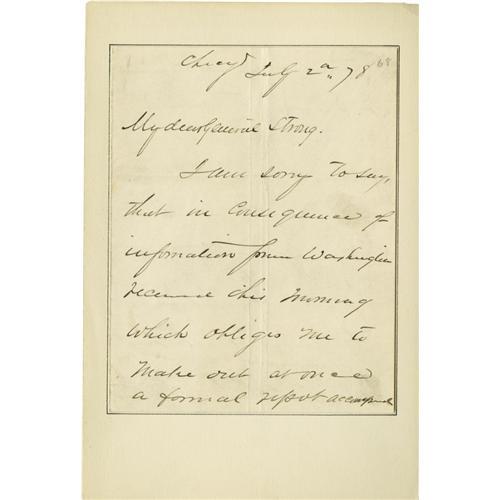 Chicago July 2d 78 68
My dear General Strong.
I am sorry to say,
that in Consequence of
information from Washington
received this Morning
Which obliges Me to
Make out at once
a formal report